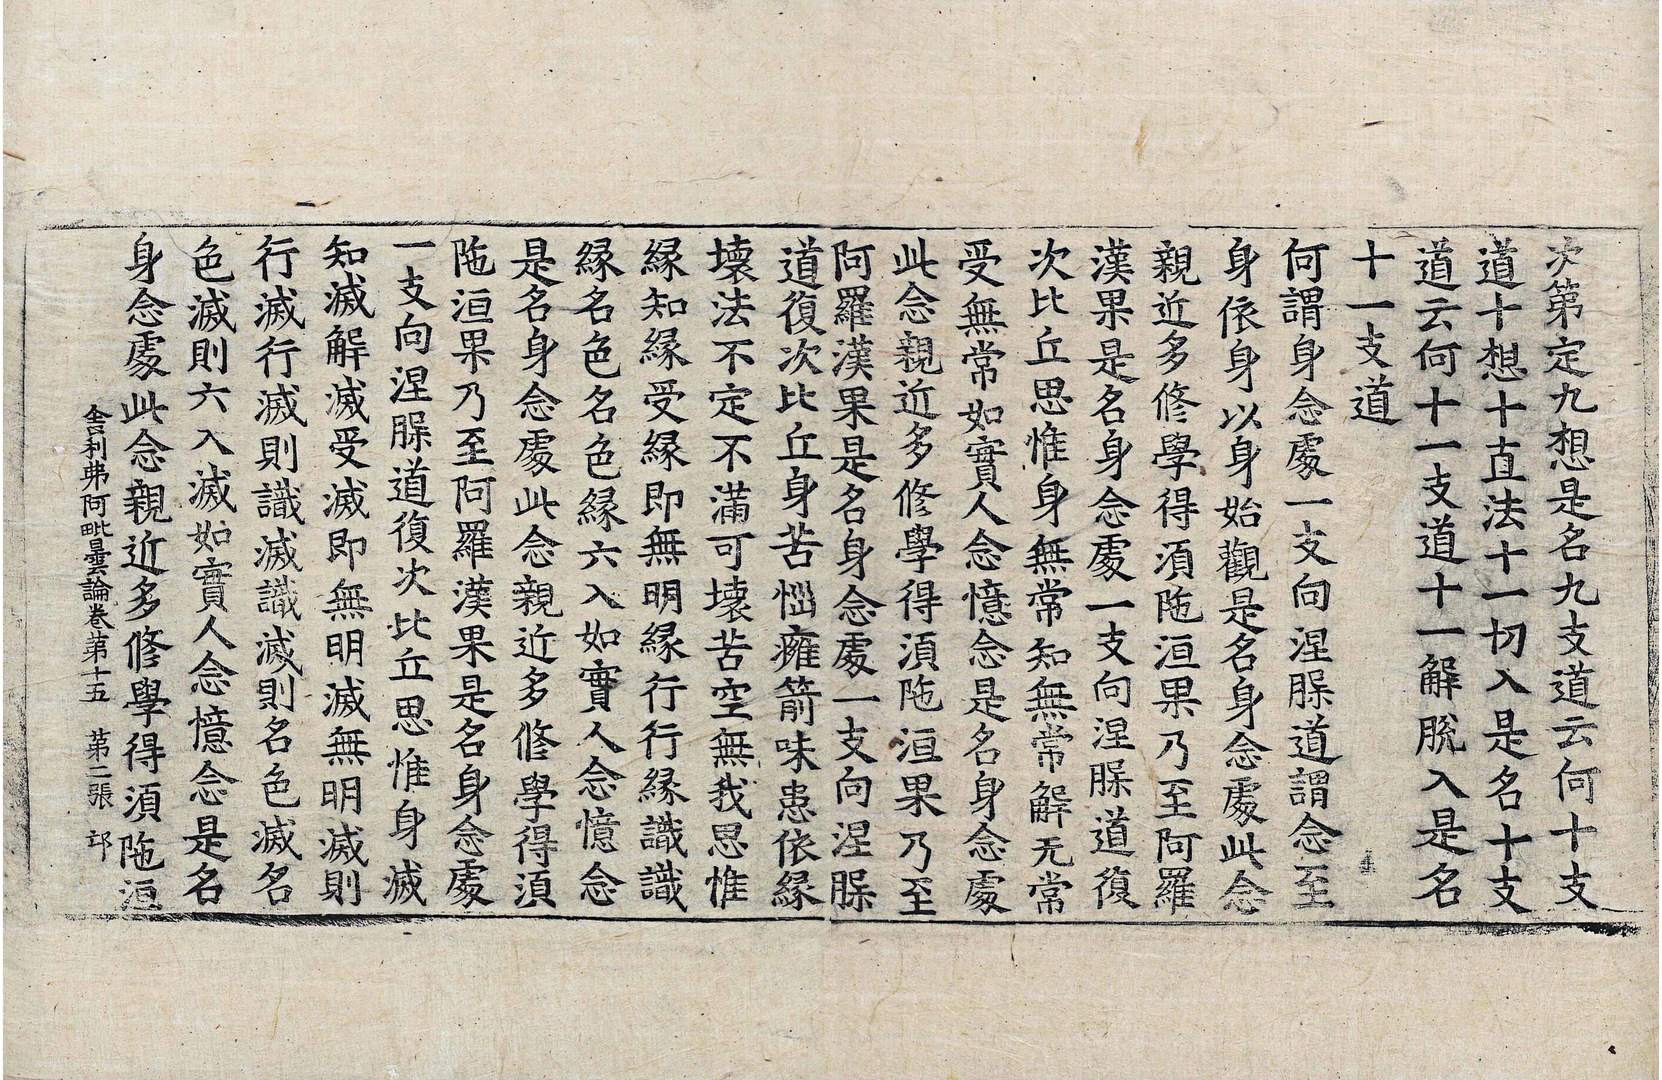 次第定九想是名九支道云何十支
道十想十直法十一切入是名十支
道云何十一支道十一解脫入是名
十一支道
何謂身念處一支向涅䏶道謂念至
身依身以身始觀是名身念處此念
親近多修學得須陁洹果乃至阿羅
漢果是名身念處一支向涅䏶道復
次比丘思惟身無常知無常解无常
受無常如實人念憶念是名身念處
此念親近多修學得須陁洹果乃至
阿羅漢果是名身念處一支向涅䏶
道復次比丘身苦惱癰箭味患依緣
壞法不定不滿可壞苦空無我思惟
緣知緣受緣即無明緣行行緣識識
緣名色名色緣六入如實人念憶念
是名身念處此念親近多修學得須
陁洹果乃至阿羅漢果是名身念處
一支向涅䏶道復次比丘思惟身滅
知滅解滅受滅即無明滅無明滅則
行滅行滅則識滅識滅則名色滅名
色滅則六入滅如實人念憶念是名
身念處此念親近多修學得須陁洹
舍利弗阿毗曇論卷第十五 第二張 邙